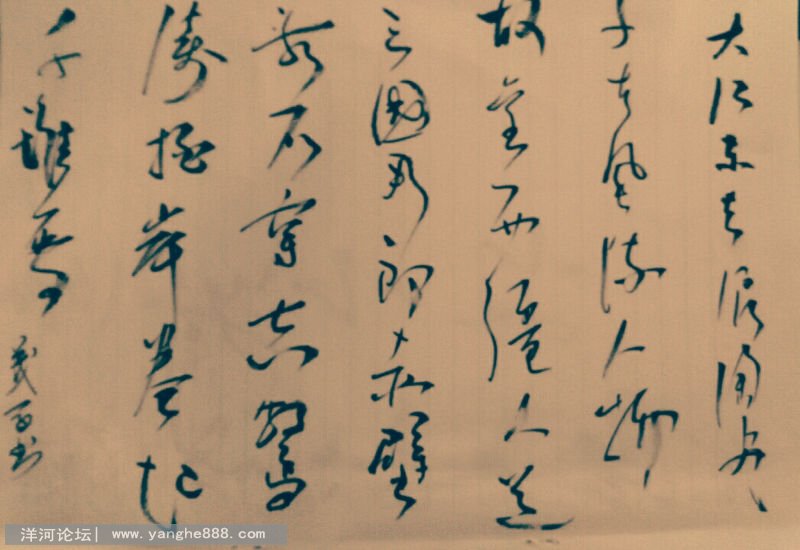 大江东去浪淘尽
千古风流人物
故垒西边人道
三國周郎赤壁
乱石穿空驚
涛拍岸卷起
千堆雪
书
洋河论坛| www.yanghe888.com